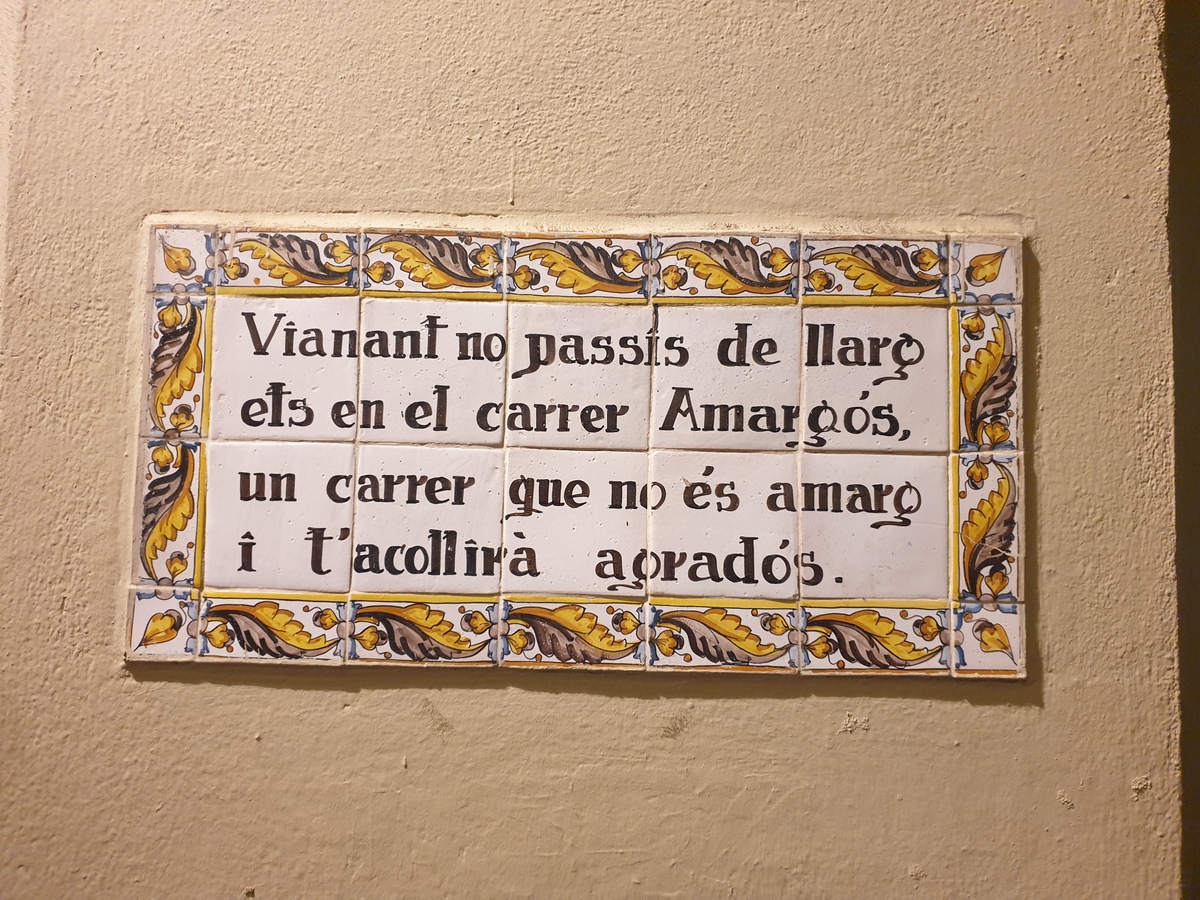 Vianant no passis de llarg
ets en el carrer Amargós,
un carrer que no és amarg
i t'acollirà agradós.